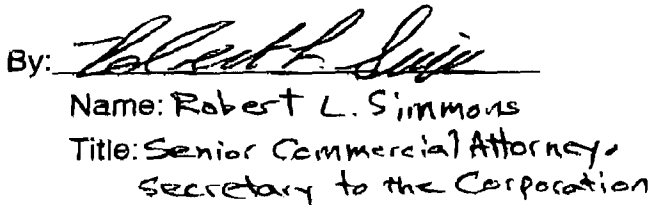 By: Robert L. Simm
Name: Robert L. Simmons
Title: Senior Commercial Attorney,
Secretary to the Corporation